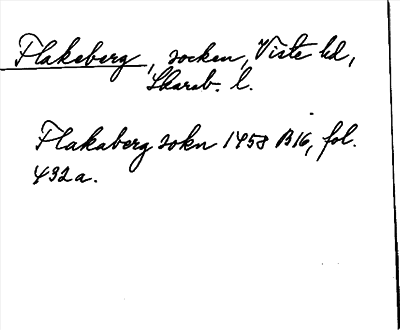 Flakeberg, socken, Viste hd,
Skarab. l.
Flakaberg sokn 1458 B16, fol.
432a.